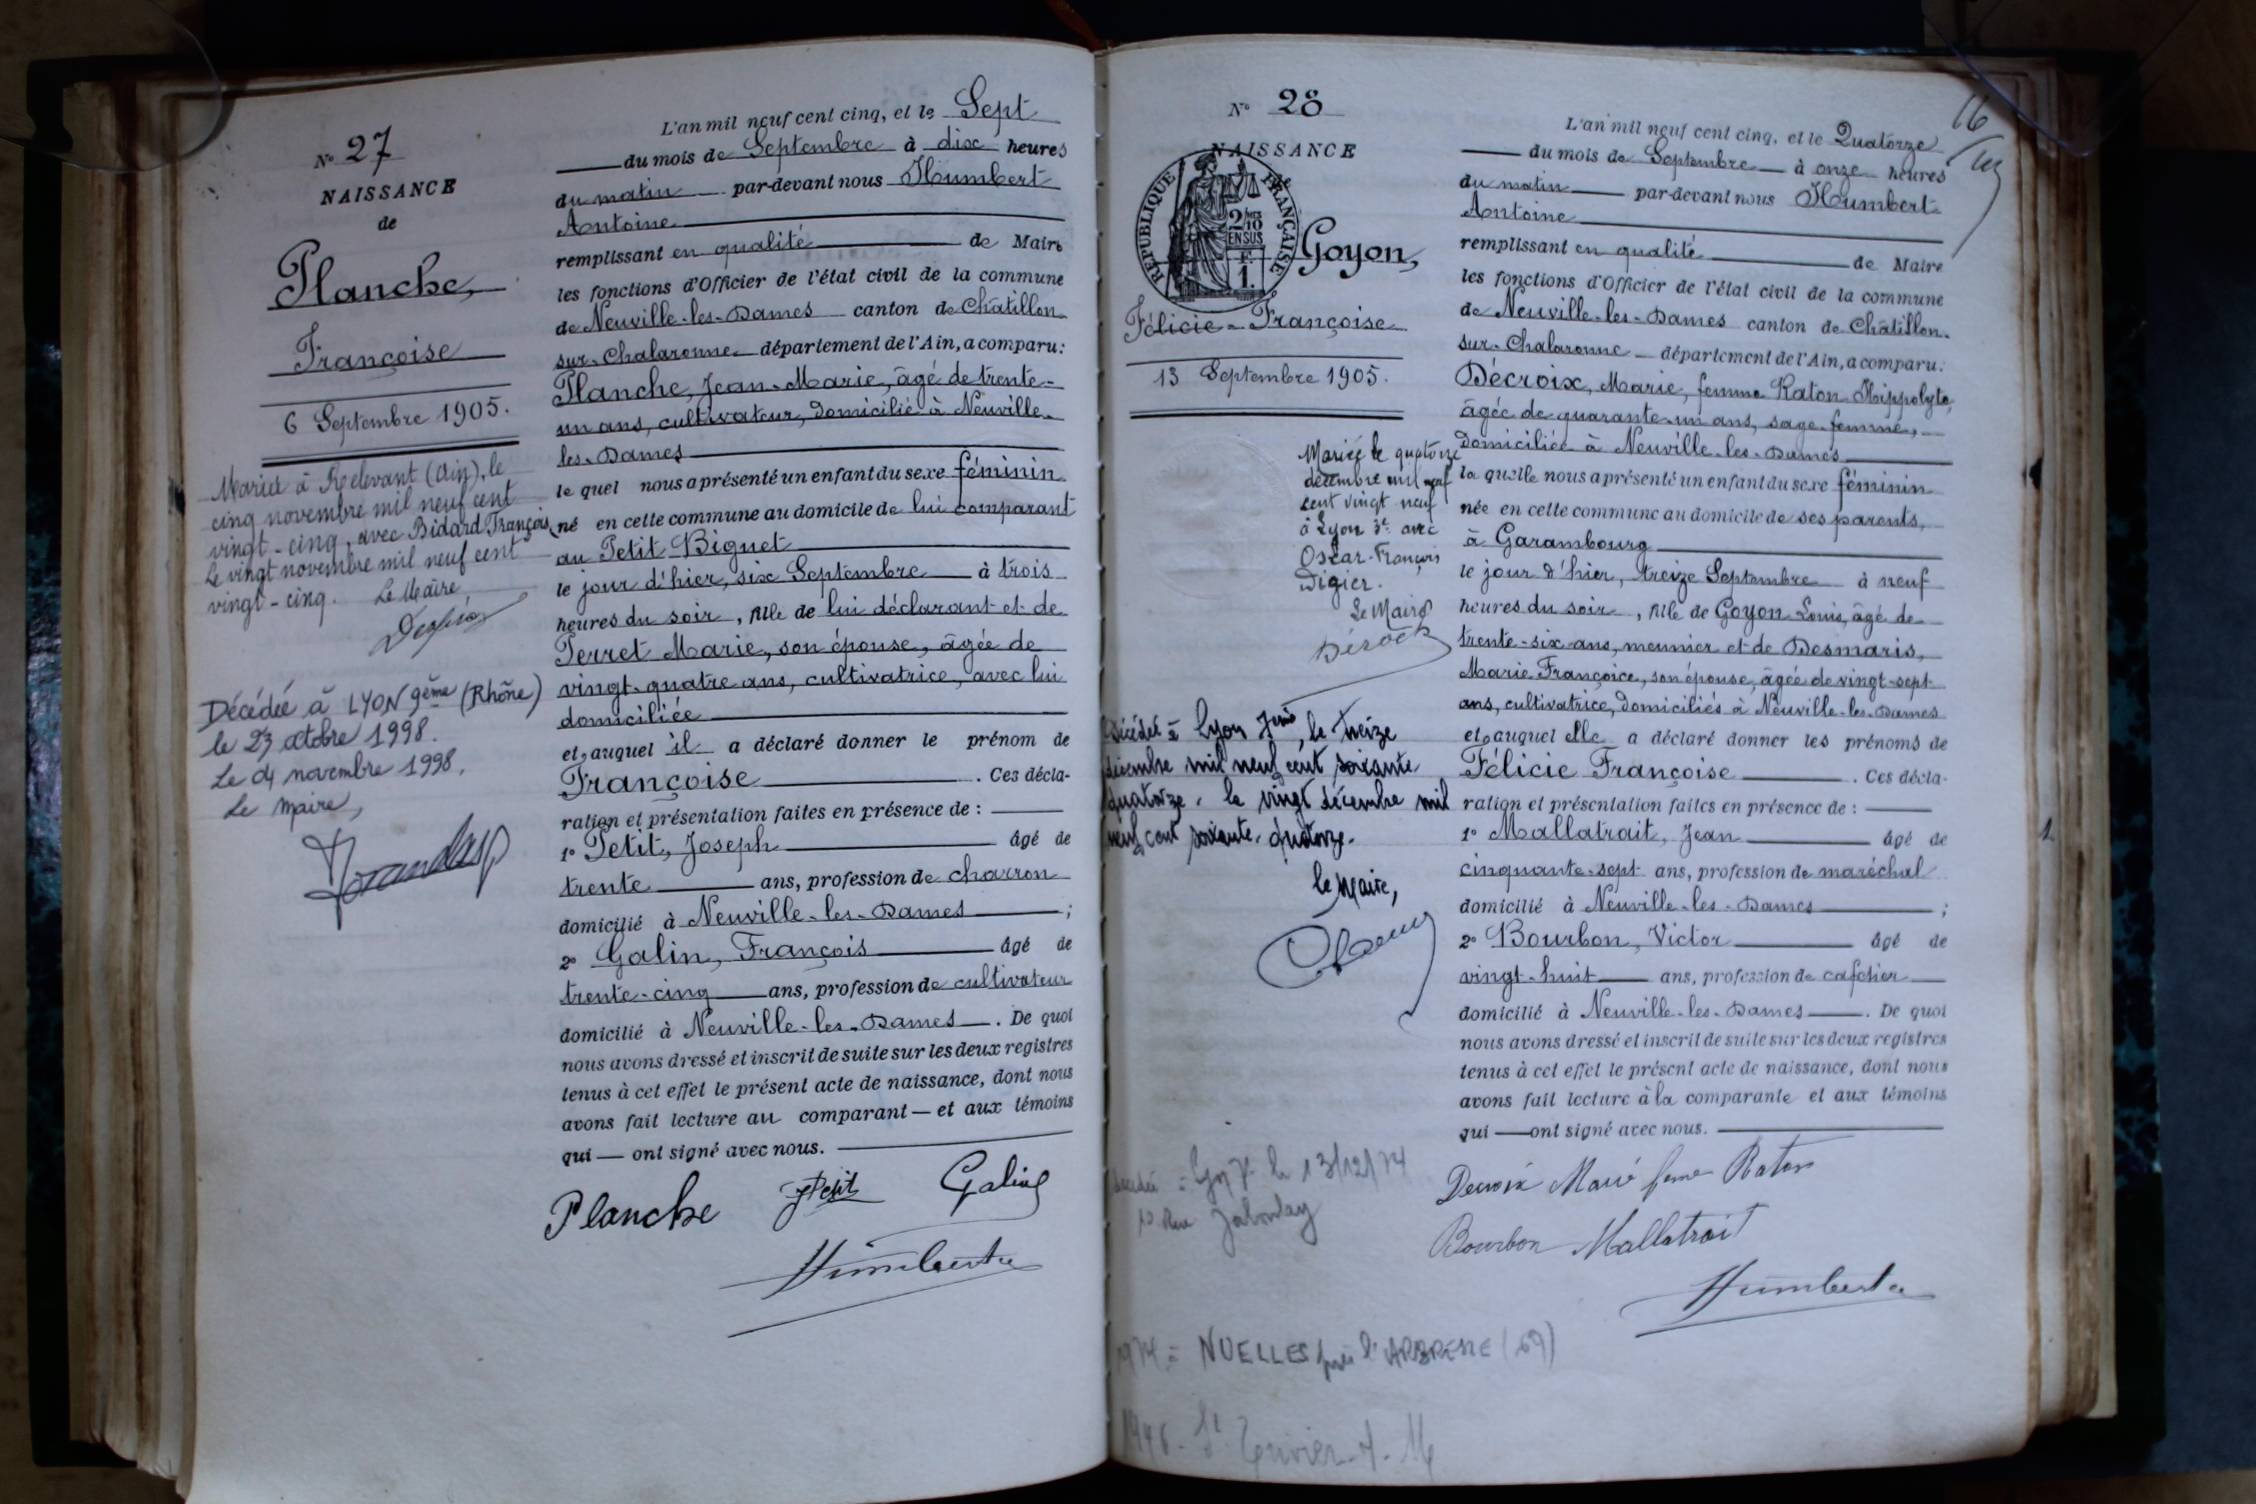 N° 27
NAISSANCE
de
Planche,
Françoise
6 Septembre 1905.
Mariée à Relevant (Ain), le
cinq novembre mil neuf cent
vingt-cinq, avec Bidard François,
Le vingt novembre mil neuf cent
vingt-cinq. Le Maire,
Décédée à LYON 9ème (Rhône)
le 23 octobre 1998.
Le 04 novembre 1998,
Le Maire,
L'an mil neuf cent cinq, et le Sept
du mois de Septembre à dix heures
du matin par-devant nous Humbert
Antoine
remplissant en qualité de Maire
les fonctions d'Officier de l'état civil de la commune
de Neuville-les-Dames canton de Châtillon-
sur-Chalaronne département de l'Ain, a comparu:
Planche, Jean-Marie, âgé de trente-
un ans, cultivateur, domicilié à Neuville-
les-Dames
le quel nous a présenté un enfant du sexe féminin
né en cette commune au domicile de lui comparant
au Petit Biguet
le jour d'hier, six Septembre à trois
heures du soir, fille de lui déclarant et de
Perret Marie, son épouse, âgée de
vingt-quatre ans, cultivatrice, avec lui
domiciliée
et, auquel il a déclaré donner le prénom de
Françoise . Ces décla-
ration et présentation faites en présence de :
1° Petit, Joseph âgé de
trente ans, profession de charron
domicilié à Neuville-les-Dames ;
2° Galin, François âgé de
trente-cinq ans, profession de cultivateur
domicilié à Neuville-les-Dames . De quoi
nous avons dressé et inscrit de suite sur les deux registres
tenus à cet effet le présent acte de naissance, dont nous
avons fait lecture au comparant — et aux témoins
qui — ont signé avec nous.
Planche JPetit Galin
Humbert
N° 28
NAISSANCE
RÉPUBLIQUE FRANÇAISE
2/10
EN SUS
F.
1.
Goyon,
Félicie-Françoise
13 Septembre 1905.
Mariée le quatorze
décembre mil neuf
cent vingt neuf
à Lyon 3e avec
Oscar-François
Digier.
Le Maire
Décédée à Lyon 7eme, le treize
décembre mil neuf cent soixante
quatorze. le vingt décembre mil
neuf cent soixante-quatorze.
le Maire,
décédée à Lyon 7e le 13/12/74
Rue Jaboulay
NUELLES près l'ARBRESLE (69)
16
L'an mil neuf cent cinq, et le Quatorze
du mois de Septembre à onze heures
du matin par-devant nous Humbert
Antoine
remplissant en qualité de Maire
les fonctions d'Officier de l'état civil de la commune
de Neuville-les-Dames canton de Châtillon-
sur-Chalaronne département de l'Ain, a comparu:
Décroix, Marie, femme Raton Hippolyte,
âgée de quarante-un ans, sage-femme,
domiciliée à Neuville-les-Dames
la quelle nous a présenté un enfant du sexe féminin
née en cette commune au domicile de ses parents,
à Garambourg
le jour d'hier, treize Septembre à neuf
heures du soir, fille de Goyon Louis, âgé de
trente-six ans, meunier et de Desmaris,
Marie Françoise, son épouse, âgée de vingt-sept
ans, cultivatrice, domiciliés à Neuville-les-Dames
et, auquel elle a déclaré donner les prénoms de
Félicie Françoise . Ces décla-
ration et présentation faites en présence de :
1° Mallatrait, Jean âgé de
cinquante-sept ans, profession de maréchal
domicilié à Neuville-les-Dames ;
2° Bourbon, Victor âgé de
vingt-huit ans, profession de cafetier
domicilié à Neuville-les-Dames . De quoi
nous avons dressé et inscrit de suite sur les deux registres
tenus à cet effet le présent acte de naissance, dont nous
avons fait lecture à la comparante et aux témoins
qui — ont signé avec nous.
Decroix Marie feme Raton
Bourbon Mallatrait
Humbert